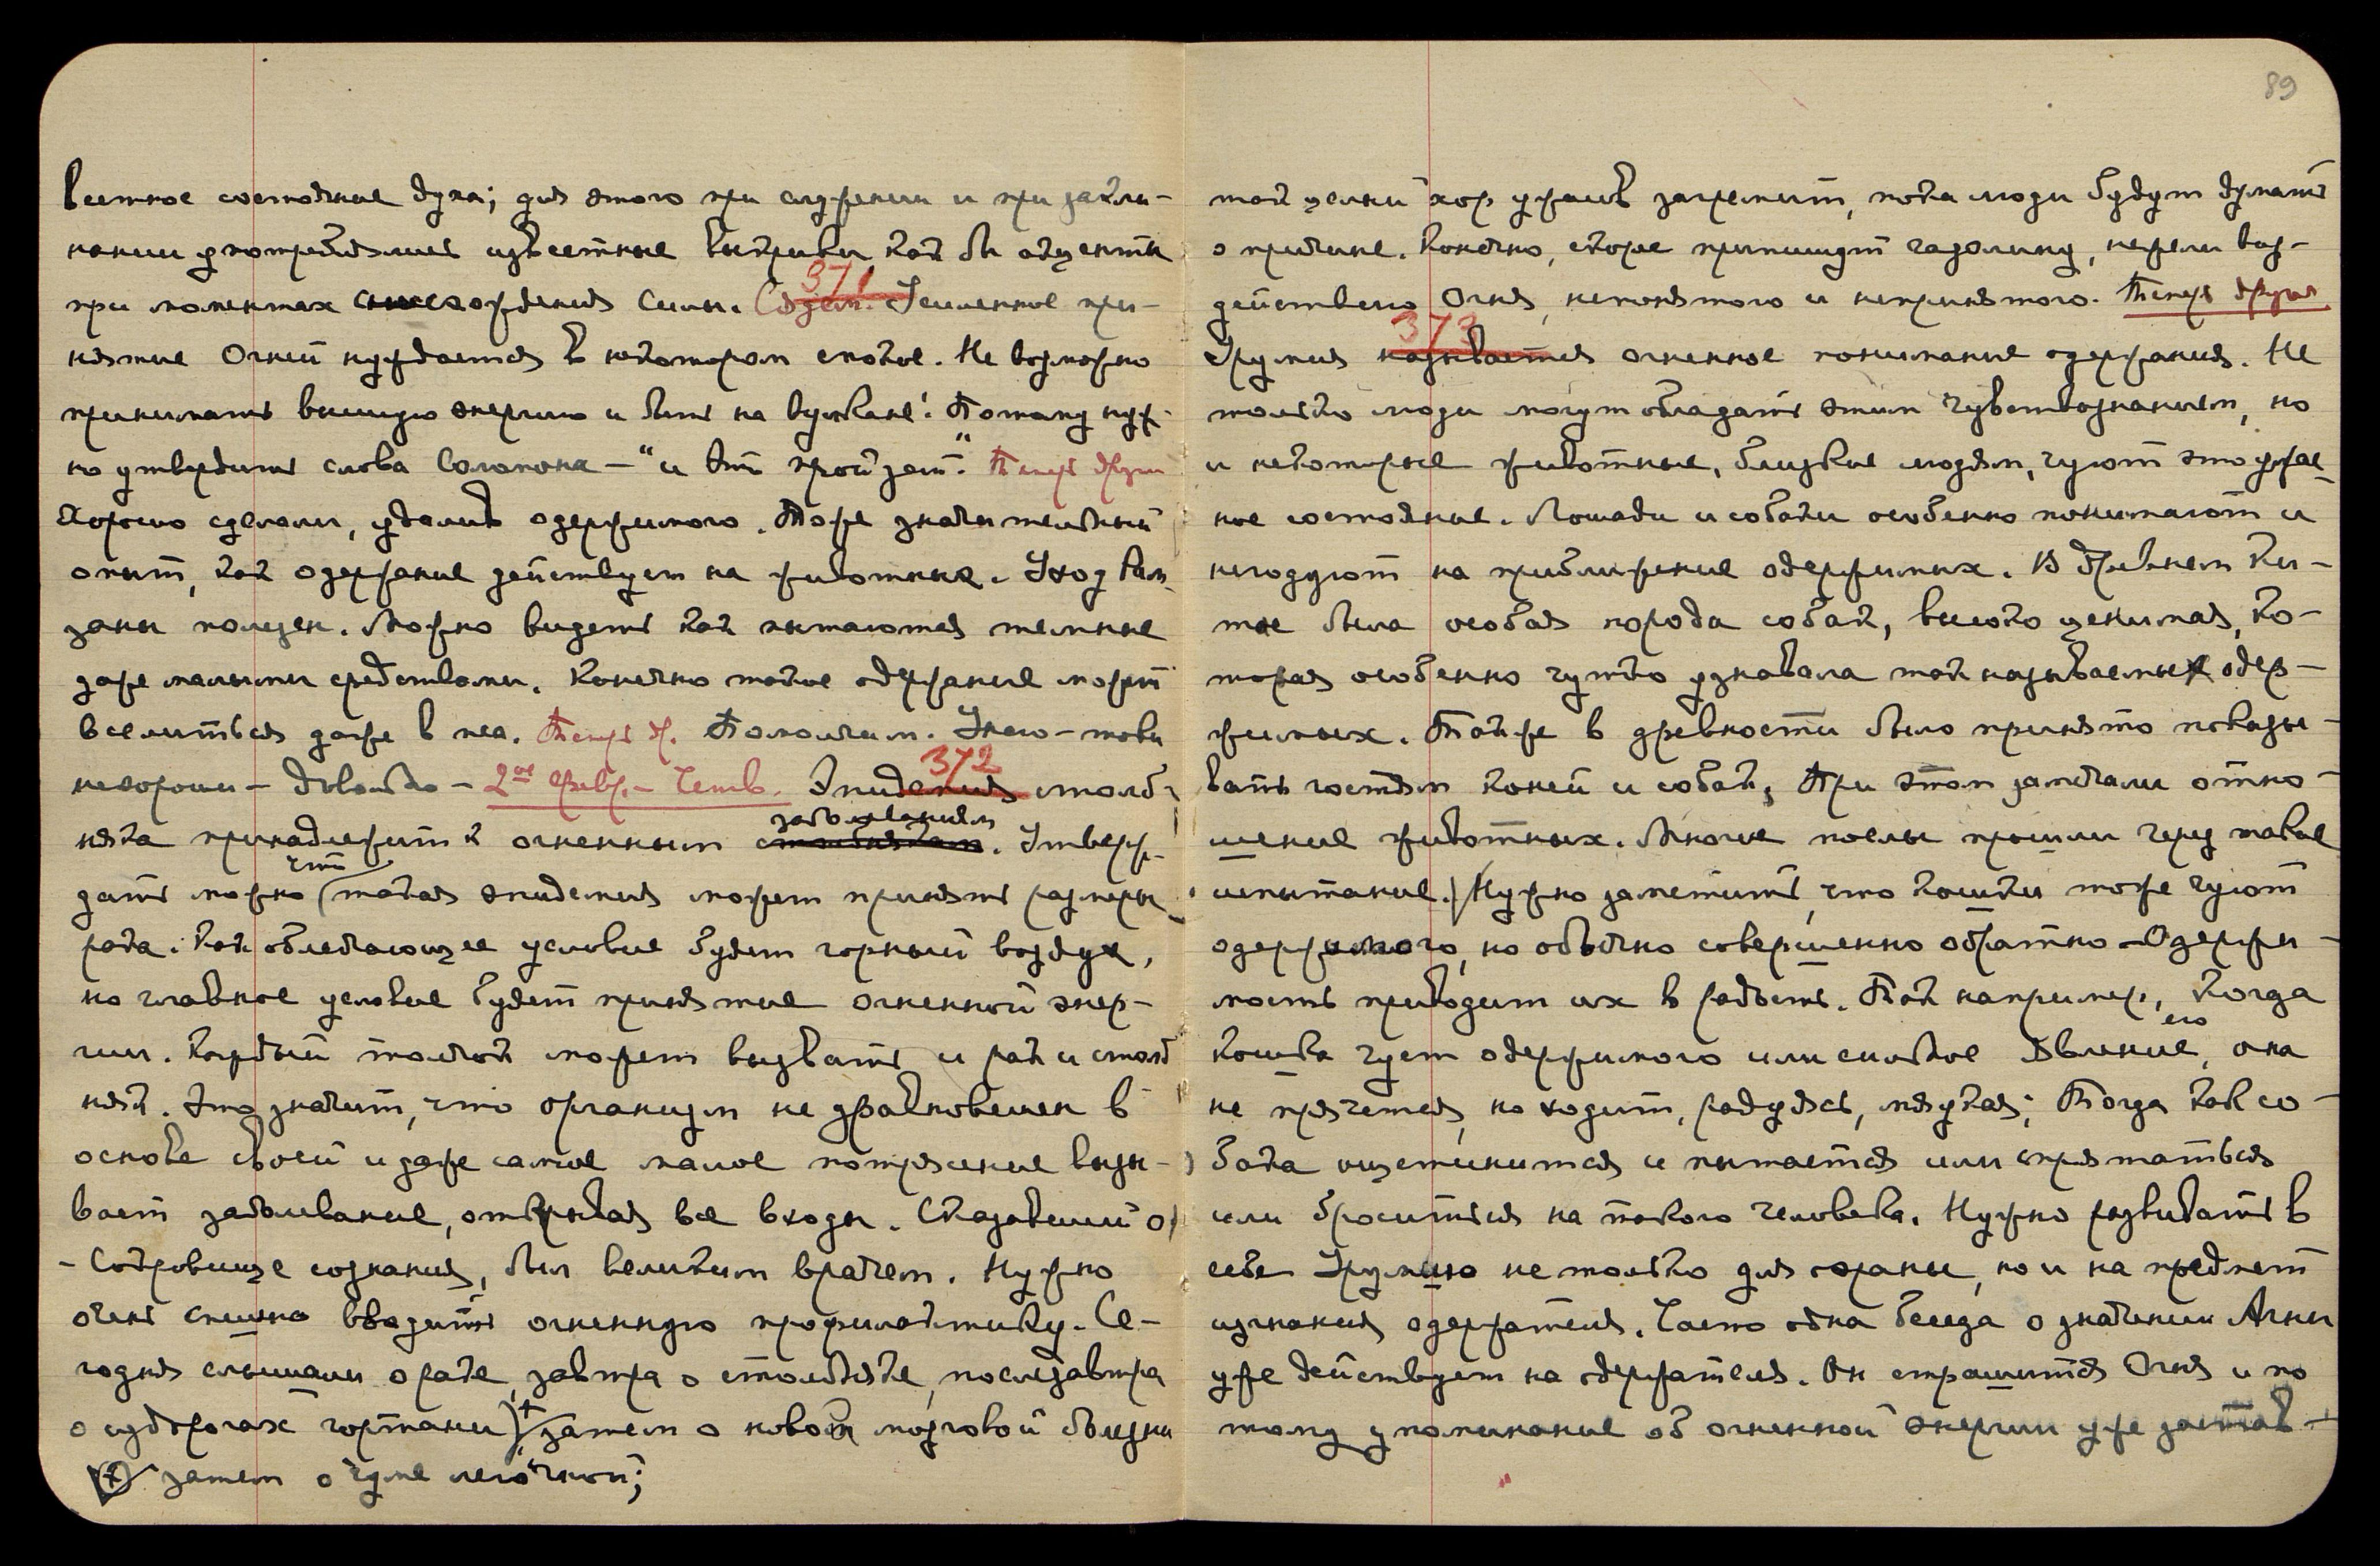 89
вестное состояние духа; для этого при служении и при закли-
нании употреблялись известные выкрики как бы акценты
при моментах снисхождения Силы. 371 Усиленное при-
нятие Огней нуждается в некотором спокое. Не возможно
принимать высшую энергию и быть на вулкане! Потому нуж-
но утвердить слова Соломона — "и это пройдет." Теперь другое
Хорошо сделали, удалив одержимого. Тоже значительный
опыт, как одержание действует на животных. Уход Рам-
заны полезен. Можно видеть как пытаются темные
даже малыми средствами. Конечно такое одержание может
вселиться даже в пса. Теперь др. Помолчим.
нехороши — довольно — 2ое февр. — Четв. 372 Эпидемия столб-
няка принадлежит к огненным столбнякам заболеваниям. Утверж-
дать можно что такая эпидемия может принять размеры
рака. Как облегчающее условие будет горный воздух,
но главное условие будет принятие огненной энер-
гии. Каждый толчок может вызвать и рак и столб
няк. Это значит, что организм не уравновешен в
основе своей и даже самое малое потрясение вызы-
вает заболевание, открывая все входы. Сказавший о
- Сокровище сознания, был великим врачем. Нужно
очень спешно вводить огненную профилактику. Се-
годня слышали о раке, завтра о столбняке, послезавтра
о судорогах гортани, + затем о новой мозговой болезни
(+) затем о чуме легочной;
так целый хор ужасов загремит, пока люди будут думать
о причине. Конечно, скорее припишут газолину, нежели воз-
действию Огня, непонятого и непринятого. Теперь другое
373 Эрумия называется огненное понимание одержания. Не
только люди могут обладать этим чувствознанием, но
и некоторые животные, близкие людям, чуют это ужас-
ное состояние. Лошади и собаки особенно понимают и
негодуют на приближение одержимых. В древнем Ки-
тае была особая порода собак, высоко ценимая, ко-
торая особенно чутко узнавала так называемых одер-
жимых. Также в древности было принято показы-
вать гостям коней и собак, При этом замечали отно-
шение животных. Многие послы прошли через такое
испытание. Нужно заметить, что кошки тоже чуют
одержимого, но обычно совершенно обратно. Одержи-
мость приводит их в радость. Так например, когда
кошка чует одержимого или сильное его явление, она
не прячется, но ходит, радуясь, мяукая; Тогда как со-
бака ощетинится и пытается или спрятаться
или броситься на такого человека. Нужно развивать в
себе Эрумию не только для охраны, но и на предмет
изгнания одержателя. Часто одна беседа о значении Агни
уже действует на одержателя. Он страшится Огня и по
тому упоминание об огненной энергии уже застав-